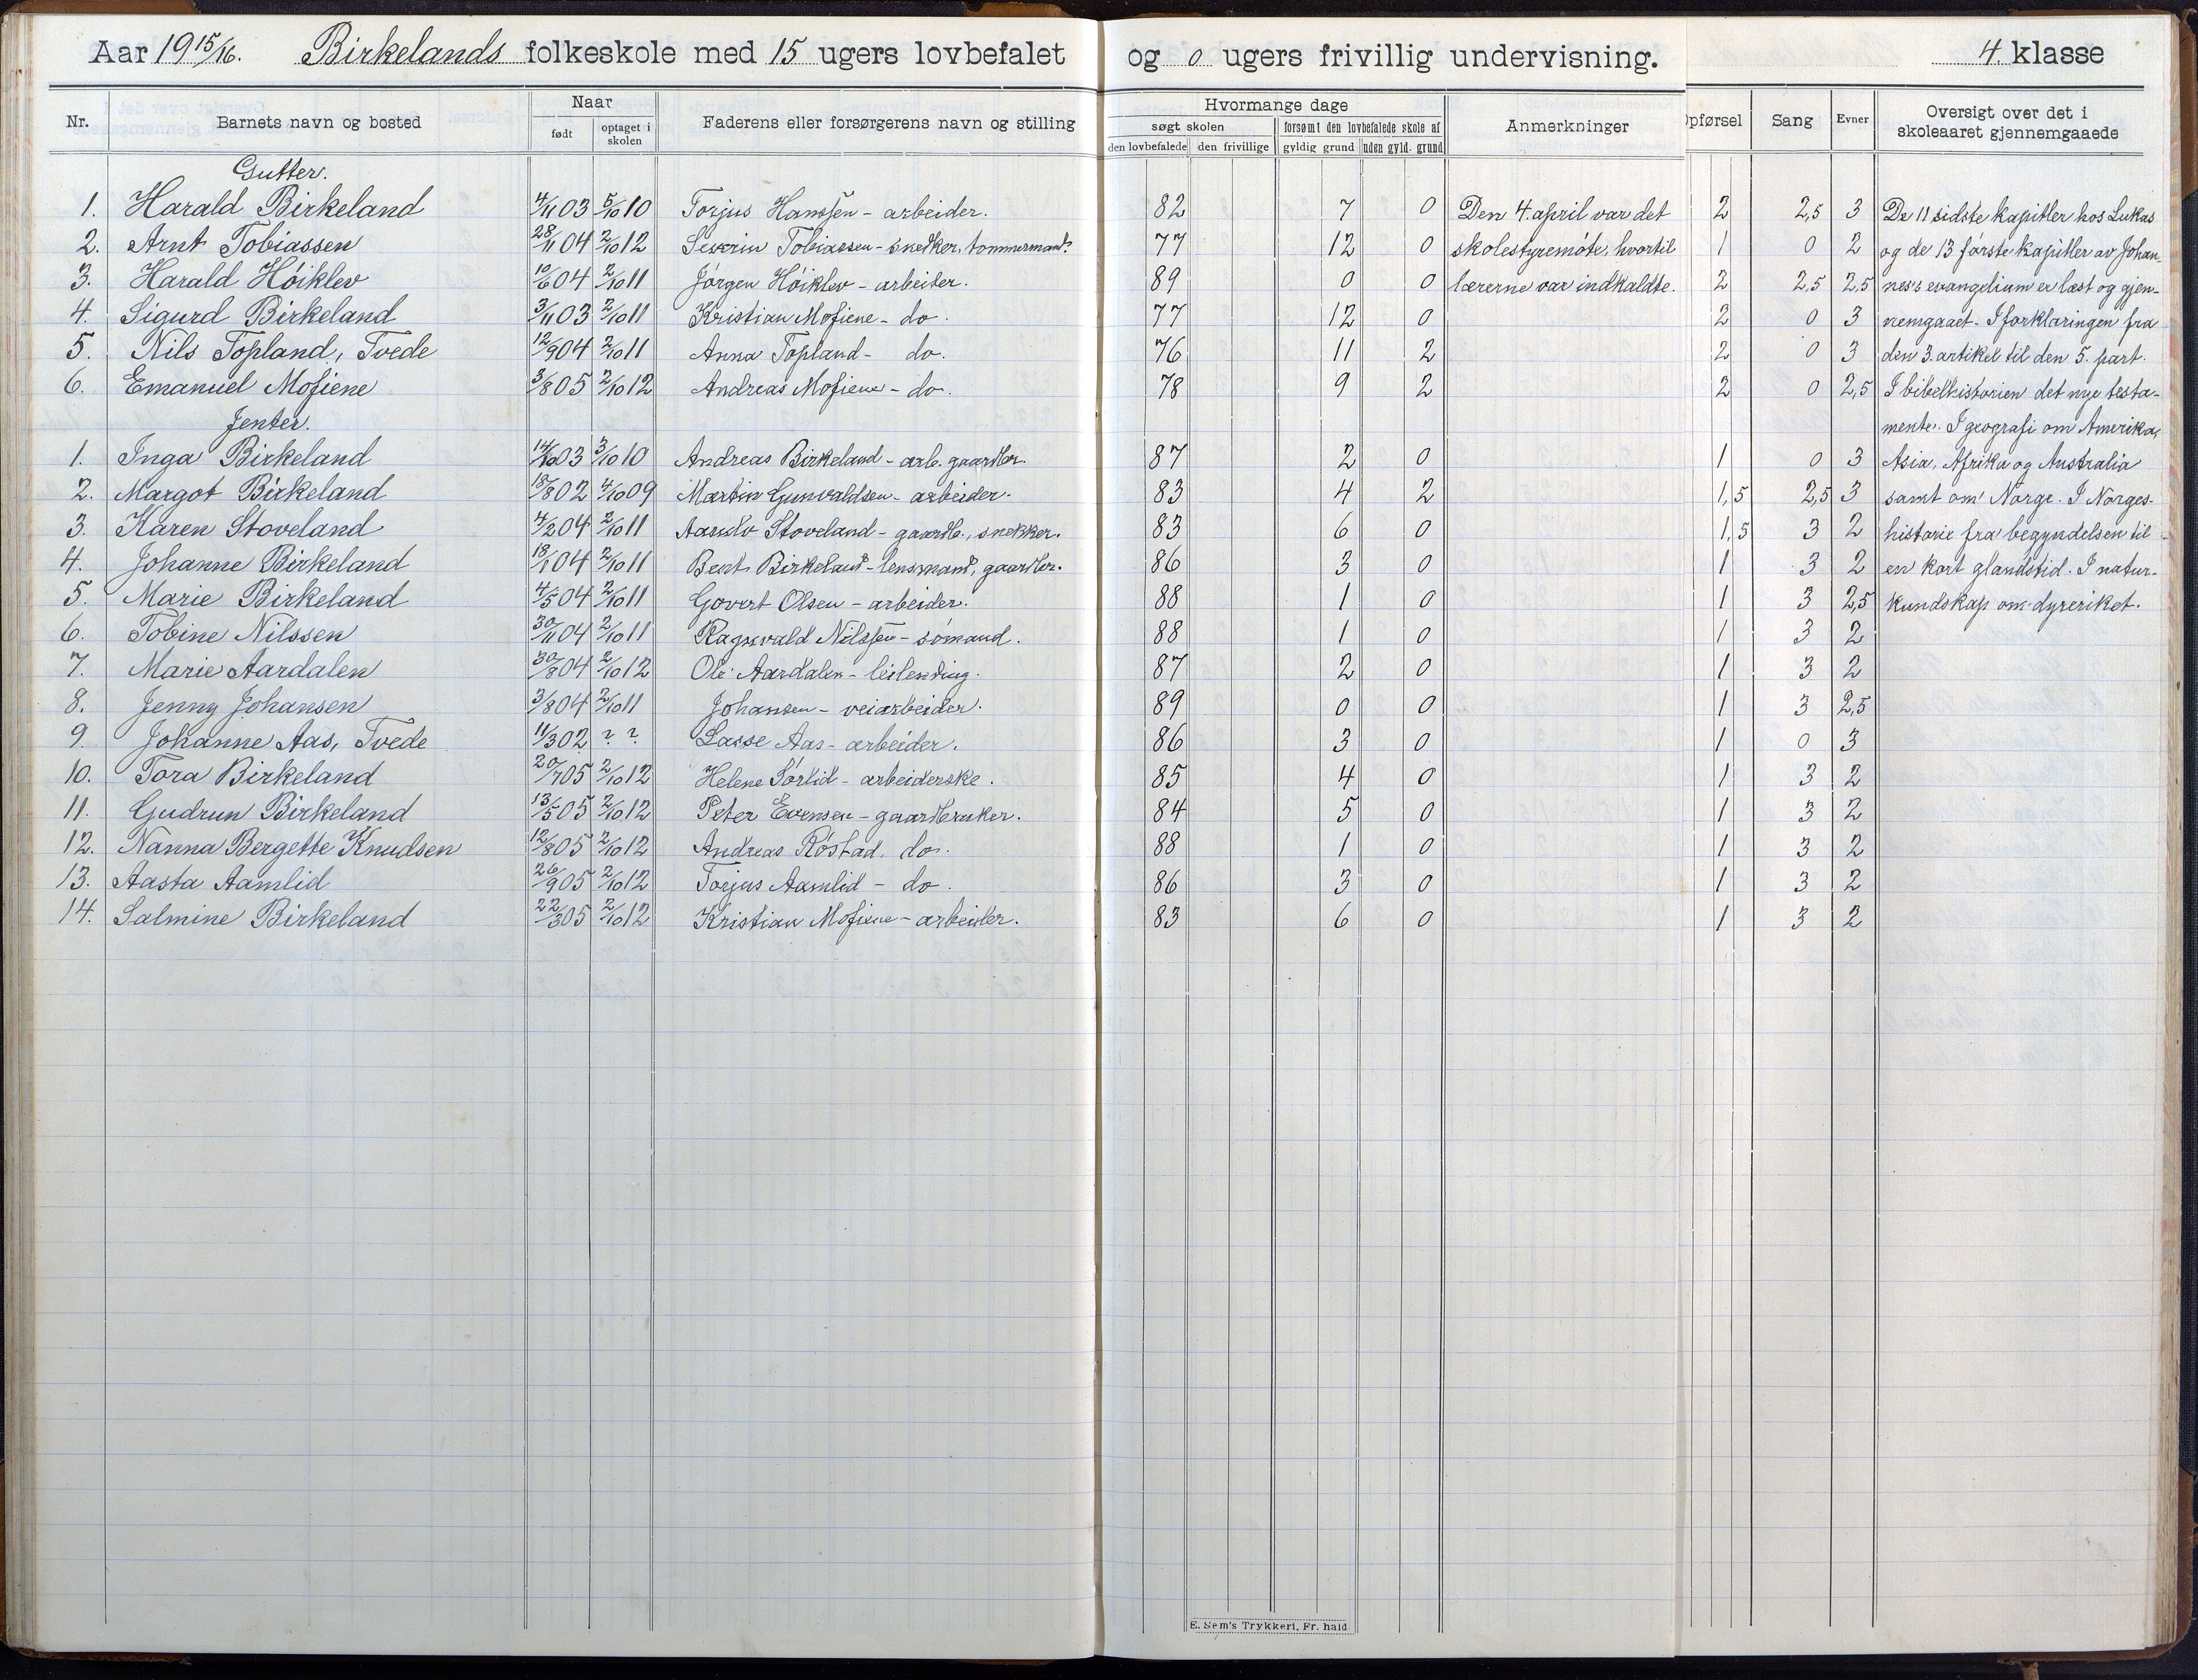 Aar 1915/16. Birkelands folkeskole med 15 ugers lovbefalet og 0 ugers frivillig undervisning. 4. klasse
Nr. Barnets navn og bosted Naar født optaget i skolen Faderens eller forsørgerens navn og stilling Hvormange dage søgt skolen den lovbefalede den frivillige forsømt den lovbefalede skole af gyldig grund uden gyld. grund Anmerkninger Opførsel Sang Evner Oversigt over det i skoleaaret gjennemgaaede
Gutter.
1. Harald Birkeland 4/11 03 5/10 10 Torjus Hanssen - arbeider. 82 7 0 Den 4. april var det 2 2,5 3 De 11 sidste kapitler hos Lukas
2. Arnt Tobiassen 28/11 04 2/10 12 Severin Tobiassen - snedker, tømmermand. 77 12 0 skolestyremøte, hvortil 1 0 2 og de 13 første kapitler av Johan-
3. Harald Høiklev 10/6 04 2/10 11 Jørgen Høiklev - arbeider. 89 0 0 lærerne var indkaldte. 2 2,5 2,5 nes's evangelium er læst og gjen-
4. Sigurd Birkeland 3/11 03 2/10 11 Kristian Mofiene - do. 77 12 0 2 0 3 nemgaaet. I forklaringen fra
5. Nils Topland, Tvede 12/9 04 2/10 11 Anna Topland - do. 76 11 2 2 0 3 den 3. artikel til den 5. part.
6. Emanuel Mofiene 3/8 05 2/10 12 Andreas Mofiene - do. 78 9 2 2 0 2,5 I bibelhistorien det nye testa-
Jenter. mente. I geografi om Amerika,
1. Inga Birkeland 14/10 03 3/10 10 Andreas Birkeland - arb. gaardbr. 87 2 0 1 0 3 Asia, Afrika og Australia
2. Margot Birkeland 18/8 02 4/10 09 Martin Gunvaldsen - arbeider. 83 4 2 1,5 2,5 3 samt om Norge. I Norges-
3. Karen Stoveland 4/2 04 2/10 11 Aasulv Stoveland - gaardb., snekker. 83 6 0 1,5 3 2 historie fra begyndelsen til
4. Johanne Birkeland 18/1 04 2/10 11 Bent Birkeland - lensmand, gaardbr. 86 3 0 1 3 2 en kort glandstid. I natur-
5. Marie Birkeland 4/5 04 2/10 11 Govert Olsen - arbeider. 88 1 0 1 3 2,5 kundskap om dyreriket.
6. Tobine Nilssen 30/11 04 2/10 11 Ragnvald Nilssen - sømand. 88 1 0 1 3 2
7. Marie Aardalen 30/8 04 2/10 12 Ole Aardalen - leilending. 87 2 0 1 3 2
8. Jenny Johansen 3/8 04 2/10 11 Johansen - veiarbeider. 89 0 0 1 3 2,5
9. Johanne Aas, Tvede 11/3 02 ? ? Lasse Aas - arbeider. 86 3 0 1 0 3
10. Tora Birkeland 20/7 05 2/10 12 Helene Sørlid - arbeiderske. 85 4 0 1 3 2
11. Gudrun Birkeland 13/5 05 2/10 12 Peter Evensen - gaardbruker. 84 5 0 1 3 2
12. Nanna Bergette Knudsen 12/8 05 2/10 12 Andreas Røstad, do. 88 1 0 1 3 2
13. Aasta Aamlid 26/9 05 2/10 12 Torjus Aamlid - do. 86 3 0 1 3 2
14. Salmine Birkeland 22/3 05 2/10 12 Kristian Mofiene - arbeider. 83 6 0 1 3 2
E. Sem's Trykkeri, Fr. hald